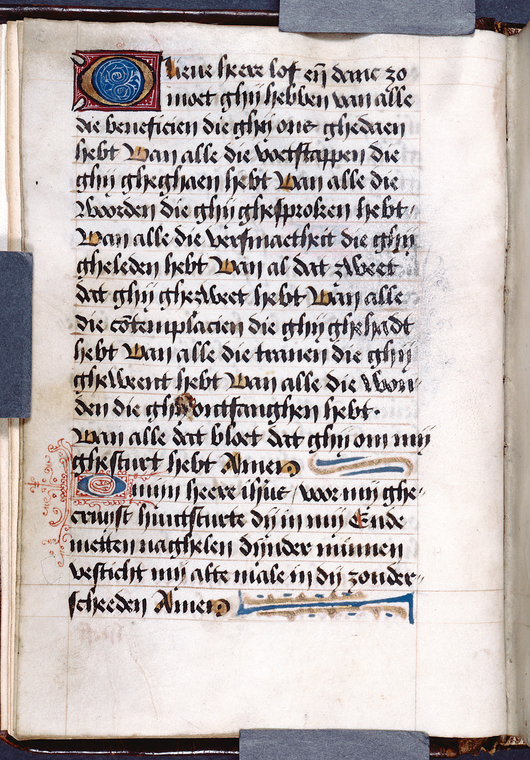 O lieue heere lof eñ danc zo
moet ghij hebben van alle
die beneficien die ghij ons ghedaen
hebt Van alle die voetstappen die
ghij gheghaen hebt Van alle die
Woorden die ghij ghesproken hebt
Van alle die versmaetheit die ghij
gheleden hebt Van al dat zweet
dat ghij ghezweet hebt Van alle
die cōtemplacien die ghij ghehadt
hebt Van alle die tranen die ghij
gheweent hebt Van alle die Won-
den die ghij ontfanghen hebt.
Van alle dat bloet dat ghij om mij
ghesturt hebt Amen
O mijn heere ihūs voor mij ghe-
cruust sturte dij in mij Ende
metten naghelen dijnder minnen
vesticht mij alte male in dij zonder
scheeden Amen